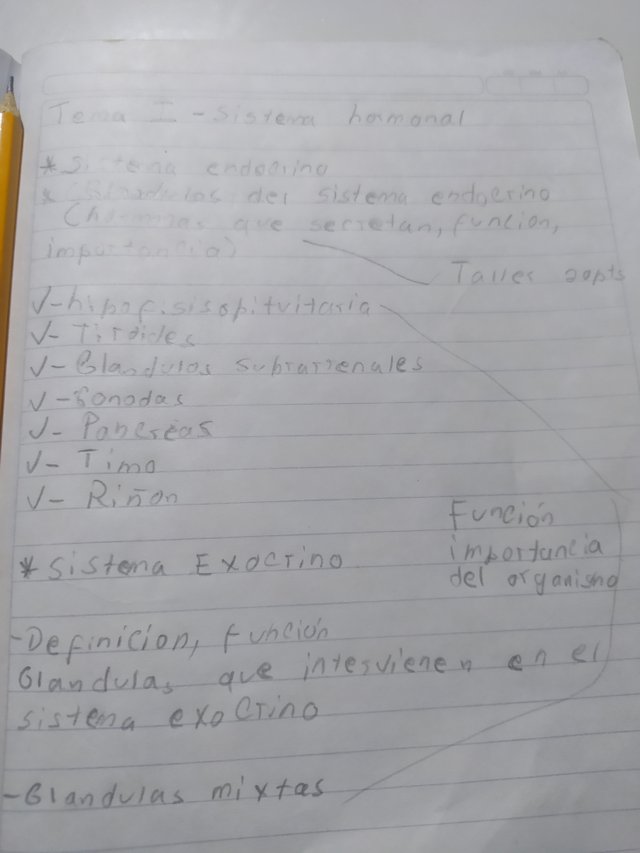 Tema I - Sistema hormonal
* Sistema endocrino
* Glandulas del sistema endocrino
(hormonas que secretan, funcion,
importancia)
Taller 20pts
✓- hipofisis o pituitaria
✓- Tiroides
✓- Glandulas subrarrenales
✓- Gonodas
✓- Pancreas
✓- Timo
✓- Riñon
Función
importancia
del organismo
* Sistema Exocrino
- Definicion, función
Glandulas que intervienen en el
sistema exocrino
- Glandulas mixtas